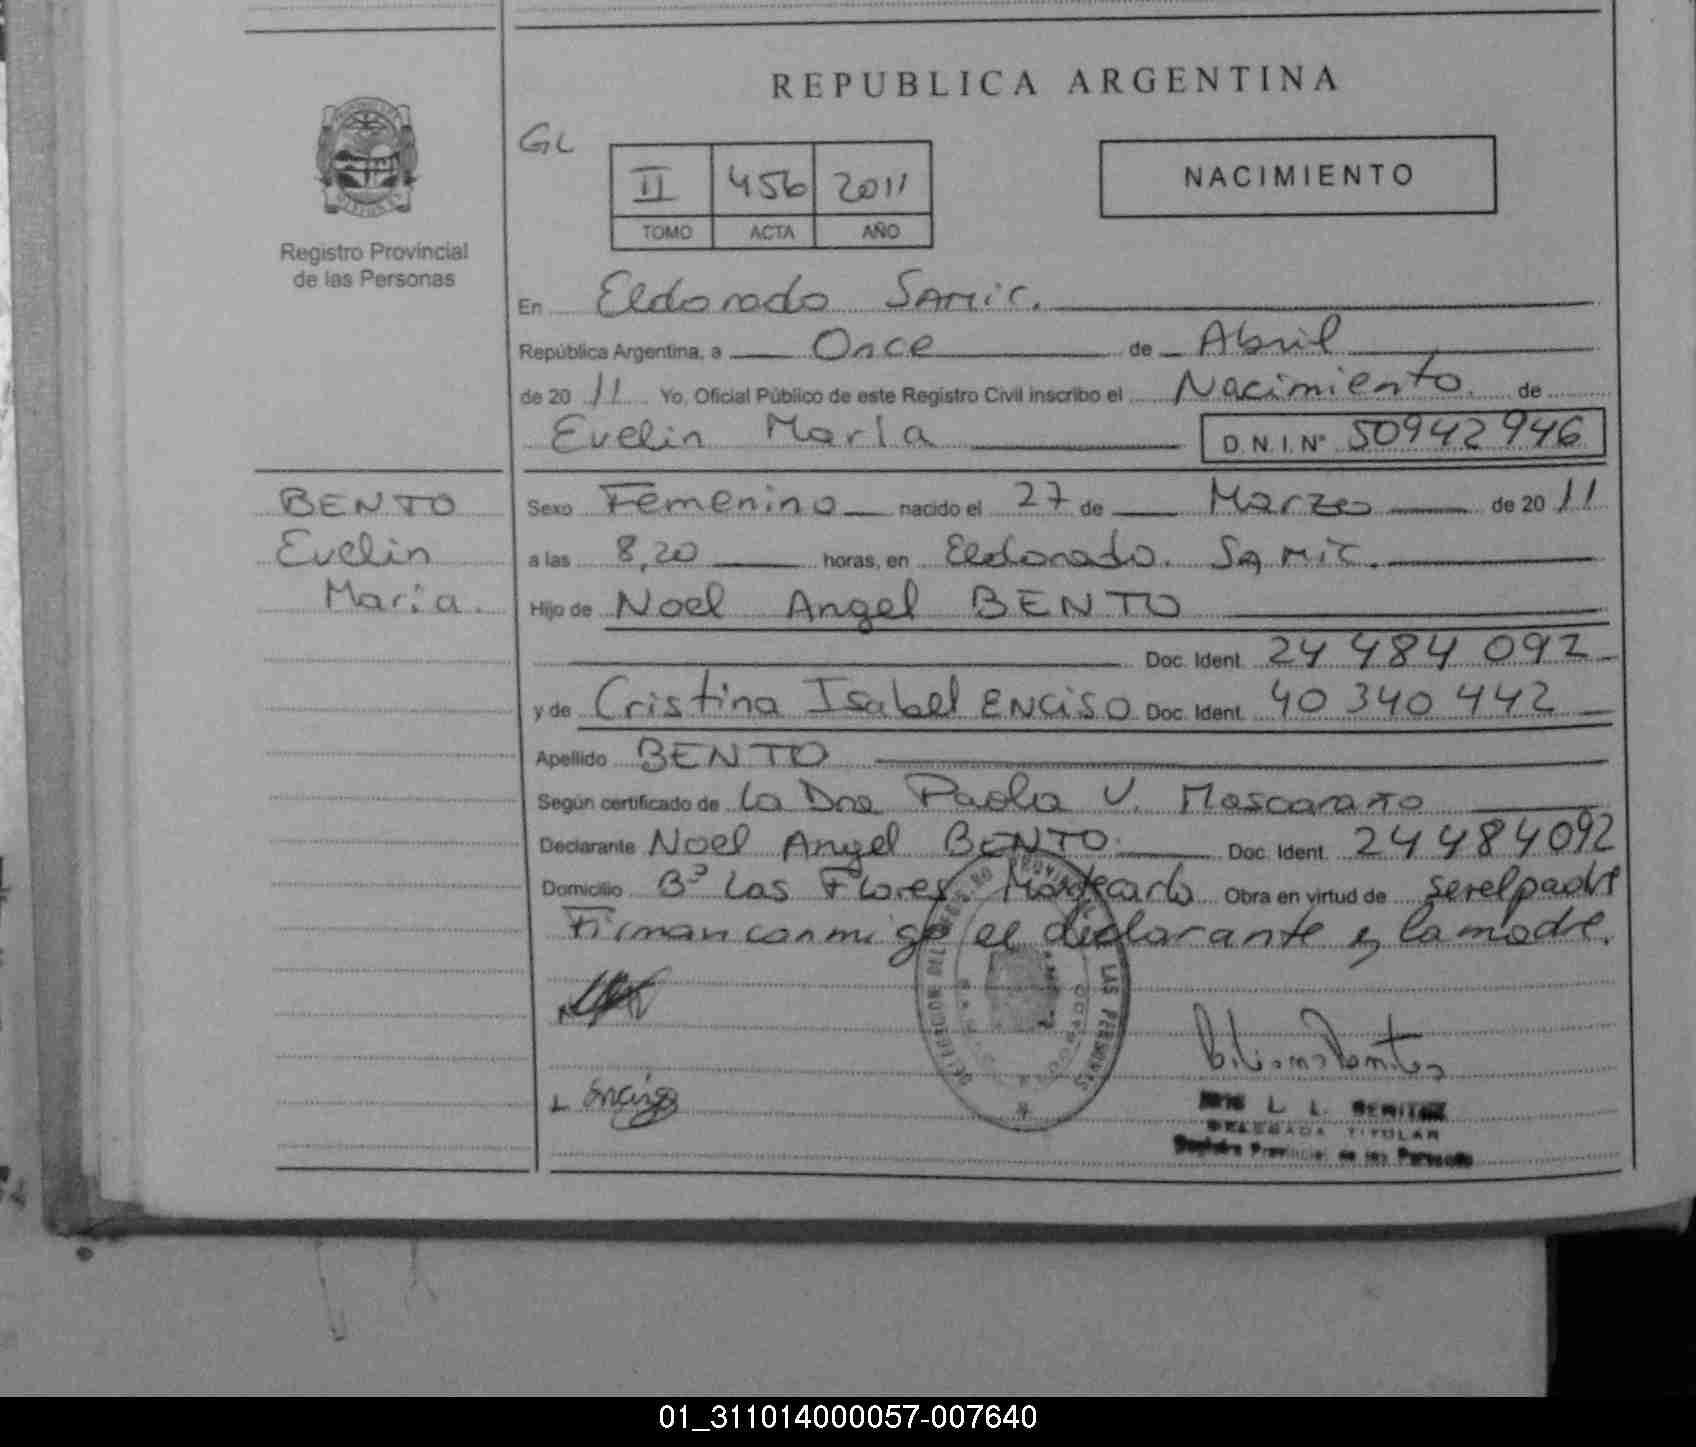 REPUBLICA ARGENTINA
GL
II 456 2011
TOMO ACTA AÑO
NACIMIENTO
Registro Provincial
de las Personas
En Eldorado SAMiC.
República Argentina, a Once de Abril
de 20 11 Yo, Oficial Público de este Registro Civil inscribo el Nacimiento. de
Evelin María
D.N.I. Nº 50942946
BENTO
Evelin
María.
Sexo Femenino nacido el 27 de Marzo de 20 11
a las 8,20 horas, en Eldorado. SAMiC.
Hijo de Noel Angel BENTO
Doc. Ident. 24 484 092
y de Cristina Isabel ENCISO Doc. Ident. 40 340 442
Apellido BENTO
Según certificado de La Dra Paola V.
Declarante Noel Angel BENTO Doc. Ident. 24484092
Domicilio Bº Las Flores Montecarlo Obra en virtud de ser el padre
Firman conmigo el declarante y la madre.
Enciso
L. L. BENITEZ
DELEGADA TITULAR
Registro Provincial de las Personas
01_311014000057-007640